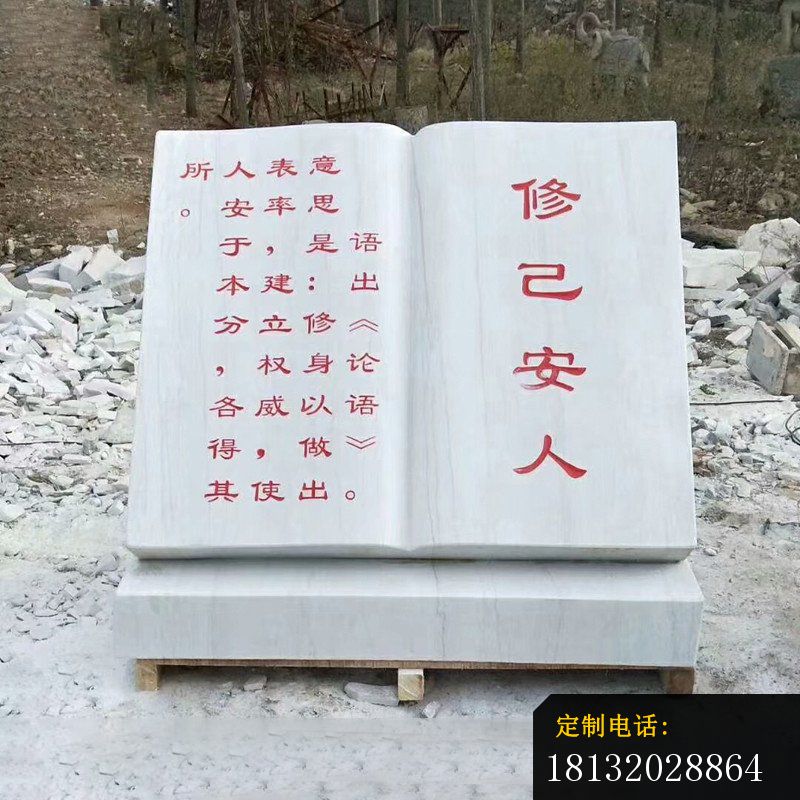 修己安人
语出《论语》。
意思是:修身以做出
表率,建立权威,使
人安于本分,各得其
所。
定制电话:
18132028864